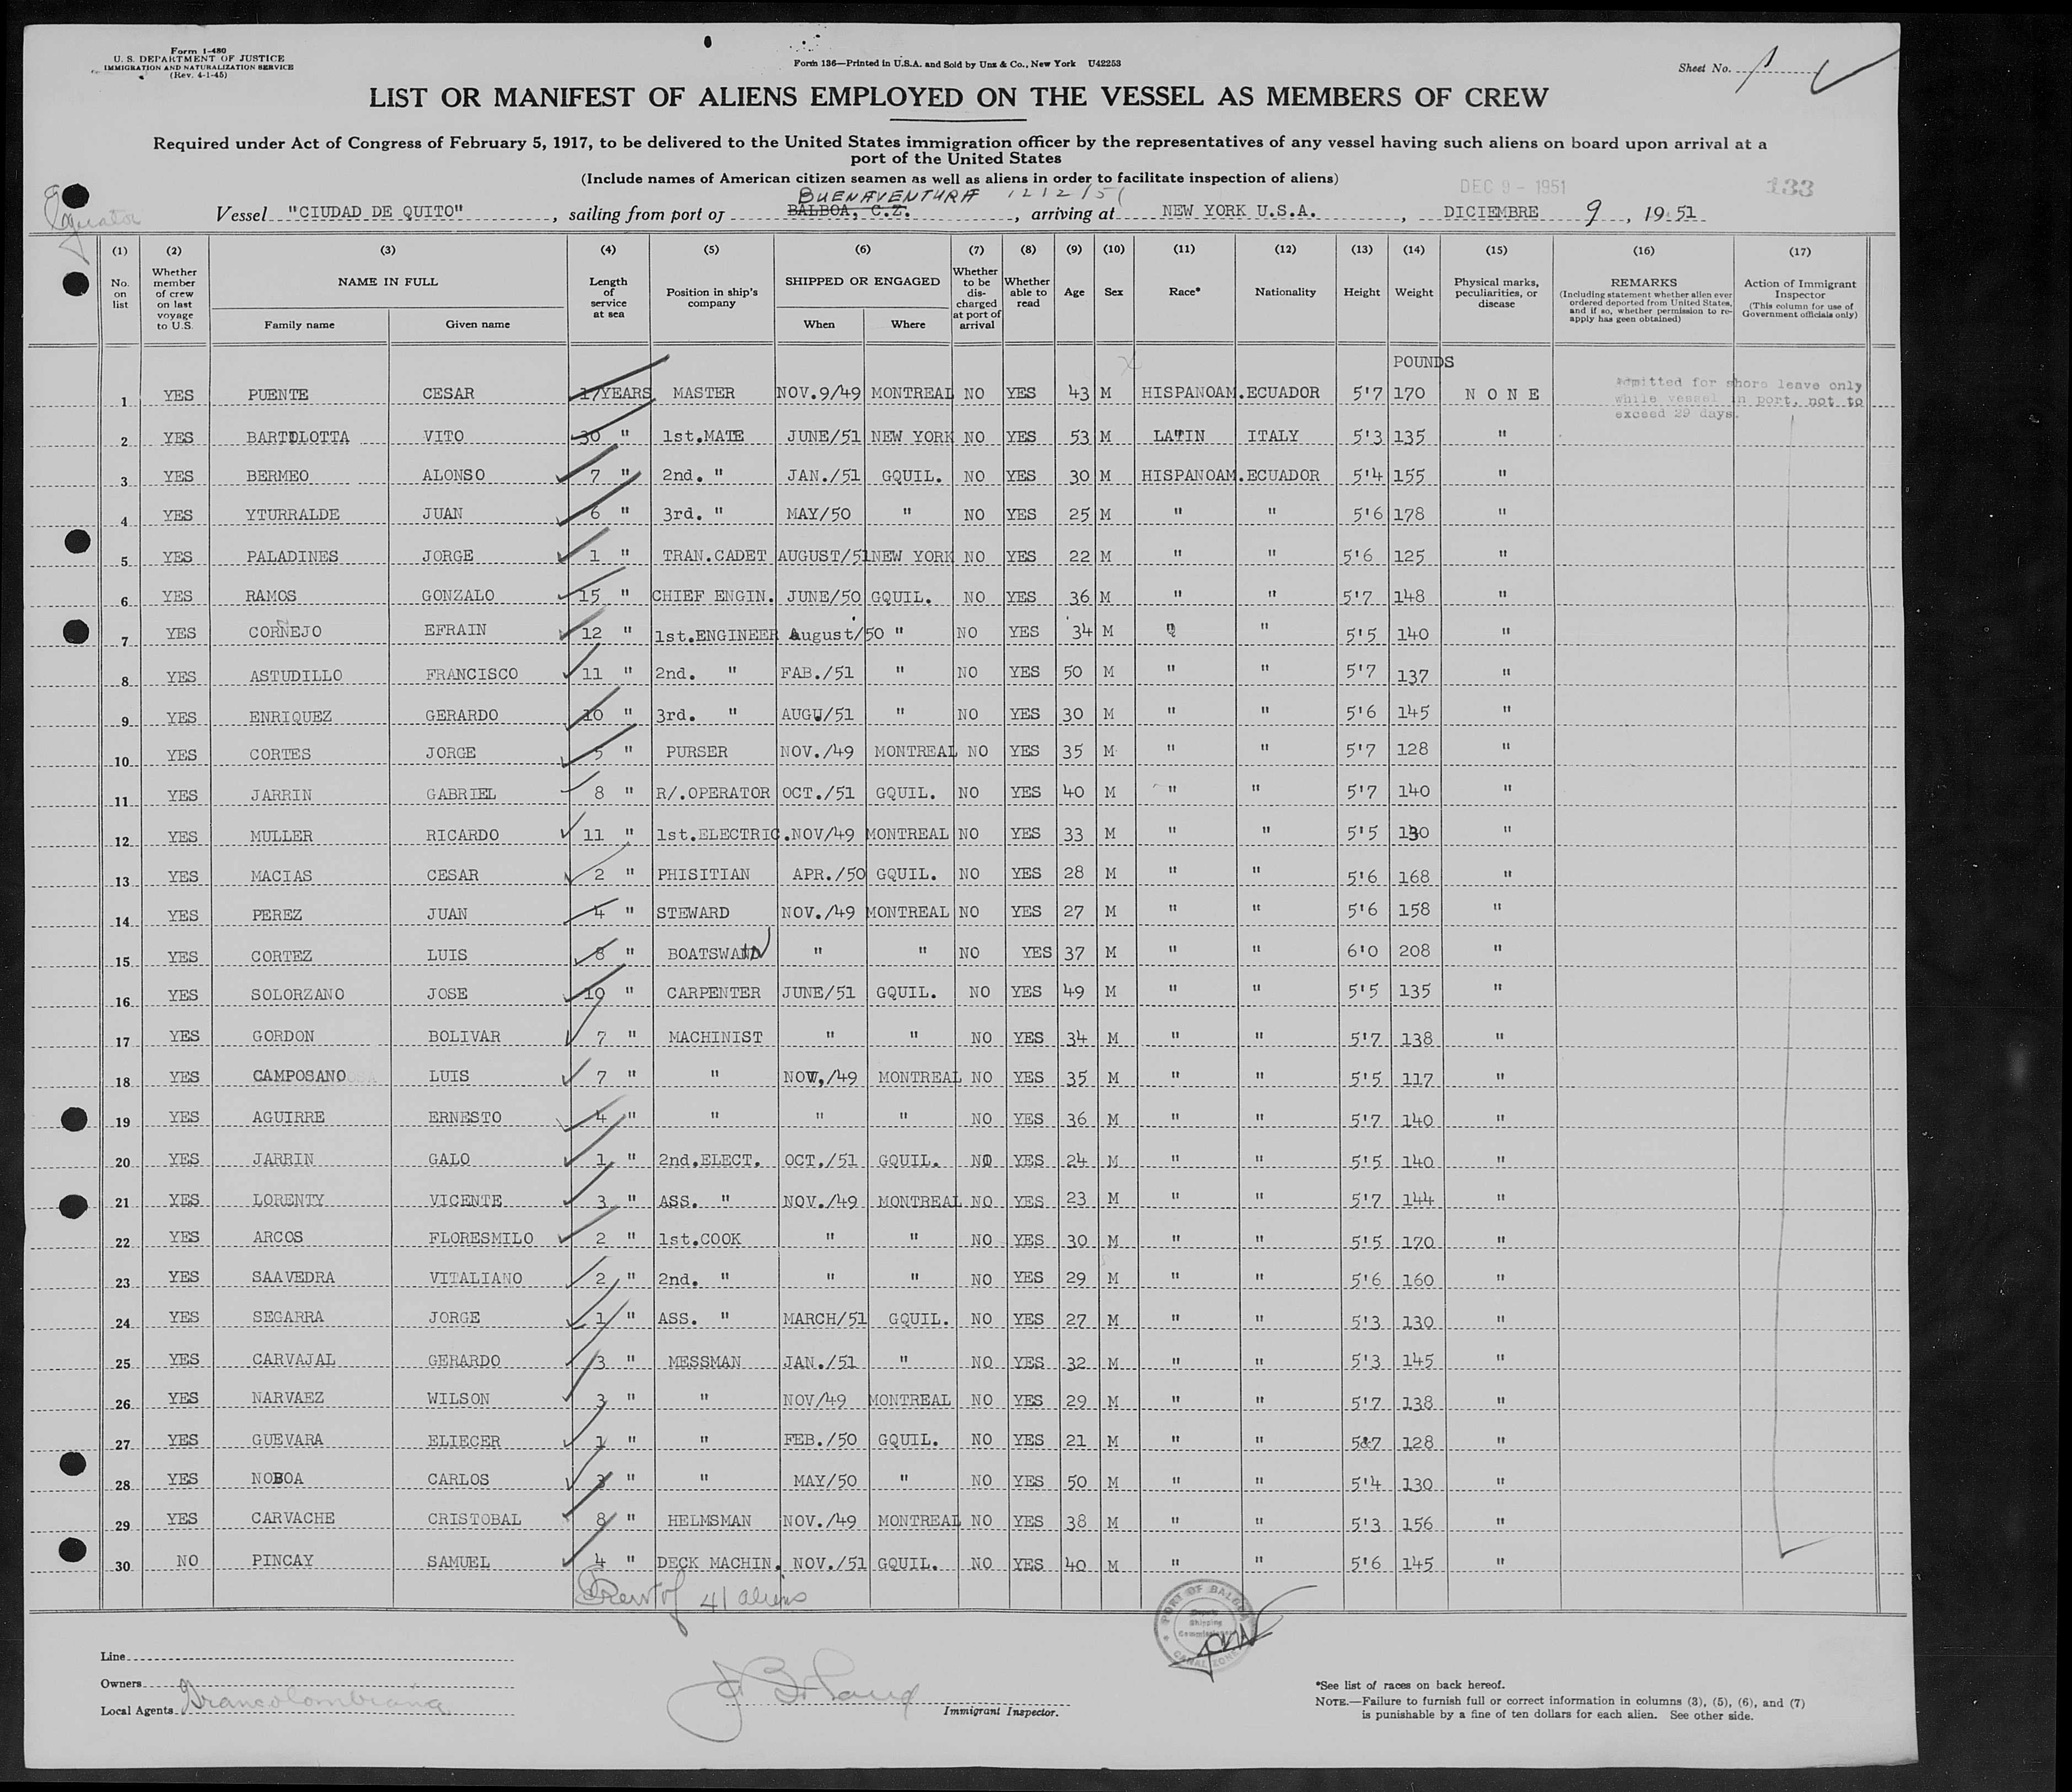 Form I-480
U. S. DEPARTMENT OF JUSTICE
IMMIGRATION AND NATURALIZATION SERVICE
(Rev. 4-1-45)
Form 136—Printed in U.S.A. and Sold by Unz & Co., New York U42253
Sheet No. 1
LIST OR MANIFEST OF ALIENS EMPLOYED ON THE VESSEL AS MEMBERS OF CREW
Required under Act of Congress of February 5, 1917, to be delivered to the United States immigration officer by the representatives of any vessel having such aliens on board upon arrival at a
port of the United States
(Include names of American citizen seamen as well as aliens in order to facilitate inspection of aliens)
BUENAVENTURA 12/2/51 DEC 9 - 1951 133
Vessel "CIUDAD DE QUITO", sailing from port of BALBOA, C.Z., arriving at NEW YORK U.S.A., DICIEMBRE 9, 1951
(1) (2) (3) (4) (5) (6) (7) (8) (9) (10) (11) (12) (13) (14) (15) (16) (17)
No. on list
Whether member of crew on last voyage to U.S.
NAME IN FULL
Family name Given name
Length of service at sea
Position in ship's company
SHIPPED OR ENGAGED
When Where
Whether to be discharged at port of arrival
Whether able to read
Age Sex Race* Nationality Height Weight
Physical marks, peculiarities, or disease
REMARKS
(Including statement whether alien ever ordered deported from United States, and if so, whether permission to re-apply has geen obtained)
Action of Immigrant Inspector
(This column for use of Government officials only)
POUNDS
Admitted for shore leave only
while vessel in port, not to
exceed 29 days.
1 YES PUENTE CESAR 17 YEARS MASTER NOV.9/49 MONTREAL NO YES 43 M HISPANOAM. ECUADOR 5'7 170 N O N E
2 YES BARTOLOTTA VITO 30 " 1st.MATE JUNE/51 NEW YORK NO YES 53 M LATIN ITALY 5'3 135 "
3 YES BERMEO ALONSO 7 " 2nd. " JAN./51 GQUIL. NO YES 30 M HISPANOAM. ECUADOR 5'4 155 "
4 YES YTURRALDE JUAN 6 " 3rd. " MAY/50 " NO YES 25 M " " 5'6 178 "
5 YES PALADINES JORGE 1 " TRAN.CADET AUGUST/51 NEW YORK NO YES 22 M " " 5'6 125 "
6 YES RAMOS GONZALO 15 " CHIEF ENGIN. JUNE/50 GQUIL. NO YES 36 M " " 5'7 148 "
7 YES CORNEJO EFRAIN 12 " 1st.ENGINEER August/50 " NO YES 34 M " " 5'5 140 "
8 YES ASTUDILLO FRANCISCO 11 " 2nd. " FAB./51 " NO YES 50 M " " 5'7 137 "
9 YES ENRIQUEZ GERARDO 10 " 3rd. " AUGU/51 " NO YES 30 M " " 5'6 145 "
10 YES CORTES JORGE 5 " PURSER NOV./49 MONTREAL NO YES 35 M " " 5'7 128 "
11 YES JARRIN GABRIEL 8 " R/.OPERATOR OCT./51 GQUIL. NO YES 40 M " " 5'7 140 "
12 YES MULLER RICARDO 11 " 1st.ELECTRIC. NOV/49 MONTREAL NO YES 33 M " " 5'5 130 "
13 YES MACIAS CESAR 2 " PHISITIAN APR./50 GQUIL. NO YES 28 M " " 5'6 168 "
14 YES PEREZ JUAN 4 " STEWARD NOV./49 MONTREAL NO YES 27 M " " 5'6 158 "
15 YES CORTEZ LUIS 8 " BOATSWAIN " " NO YES 37 M " " 6'0 208 "
16 YES SOLORZANO JOSE 10 " CARPENTER JUNE/51 GQUIL. NO YES 49 M " " 5'5 135 "
17 YES GORDON BOLIVAR 7 " MACHINIST " " NO YES 34 M " " 5'7 138 "
18 YES CAMPOSANO LUIS 7 " " NOV,/49 MONTREAL NO YES 35 M " " 5'5 117 "
19 YES AGUIRRE ERNESTO 4 " " " " NO YES 36 M " " 5'7 140 "
20 YES JARRIN GALO 1 " 2nd.ELECT. OCT./51 GQUIL. NO YES 24 M " " 5'5 140 "
21 YES LORENTY VICENTE 3 " ASS. " NOV./49 MONTREAL NO YES 23 M " " 5'7 144 "
22 YES ARCOS FLORESMILO 2 " 1st.COOK " " NO YES 30 M " " 5'5 170 "
23 YES SAAVEDRA VITALIANO 2 " 2nd. " " " NO YES 29 M " " 5'6 160 "
24 YES SEGARRA JORGE 1 " ASS. " MARCH/51 GQUIL. NO YES 27 M " " 5'3 130 "
25 YES CARVAJAL GERARDO 3 " MESSMAN JAN./51 " NO YES 32 M " " 5'3 145 "
26 YES NARVAEZ WILSON 3 " " NOV/49 MONTREAL NO YES 29 M " " 5'7 138 "
27 YES GUEVARA ELIECER 1 " " FEB./50 GQUIL. NO YES 21 M " " 5&7 128 "
28 YES NOBOA CARLOS 3 " " MAY/50 " NO YES 50 M " " 5'4 130 "
29 YES CARVACHE CRISTOBAL 8 " HELMSMAN NOV./49 MONTREAL NO YES 38 M " " 5'3 156 "
30 NO PINCAY SAMUEL 4 " DECK MACHIN. NOV./51 GQUIL. NO YES 40 M " " 5'6 145 "
Crew of 41 aliens
PORT OF BALBOA
Deputy
Shipping
Commissioner
CANAL ZONE
Line
Owners
Local Agents Grancolombiana
Immigrant Inspector.
*See list of races on back hereof.
NOTE.—Failure to furnish full or correct information in columns (3), (5), (6), and (7)
is punishable by a fine of ten dollars for each alien. See other side.